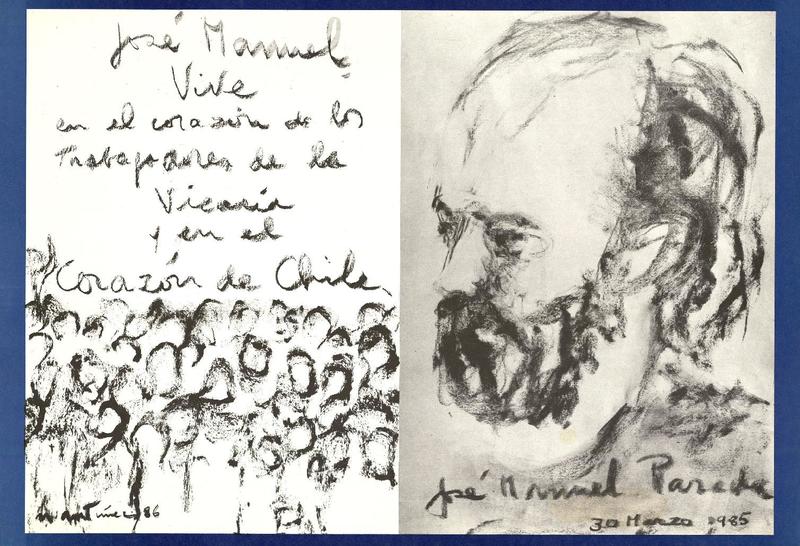 José Manuel
Vive
en el corazón de los
Trabajadores de la
Vicaría
y en el
Corazón de Chile.
86
José Manuel Parada
30 Marzo 1985